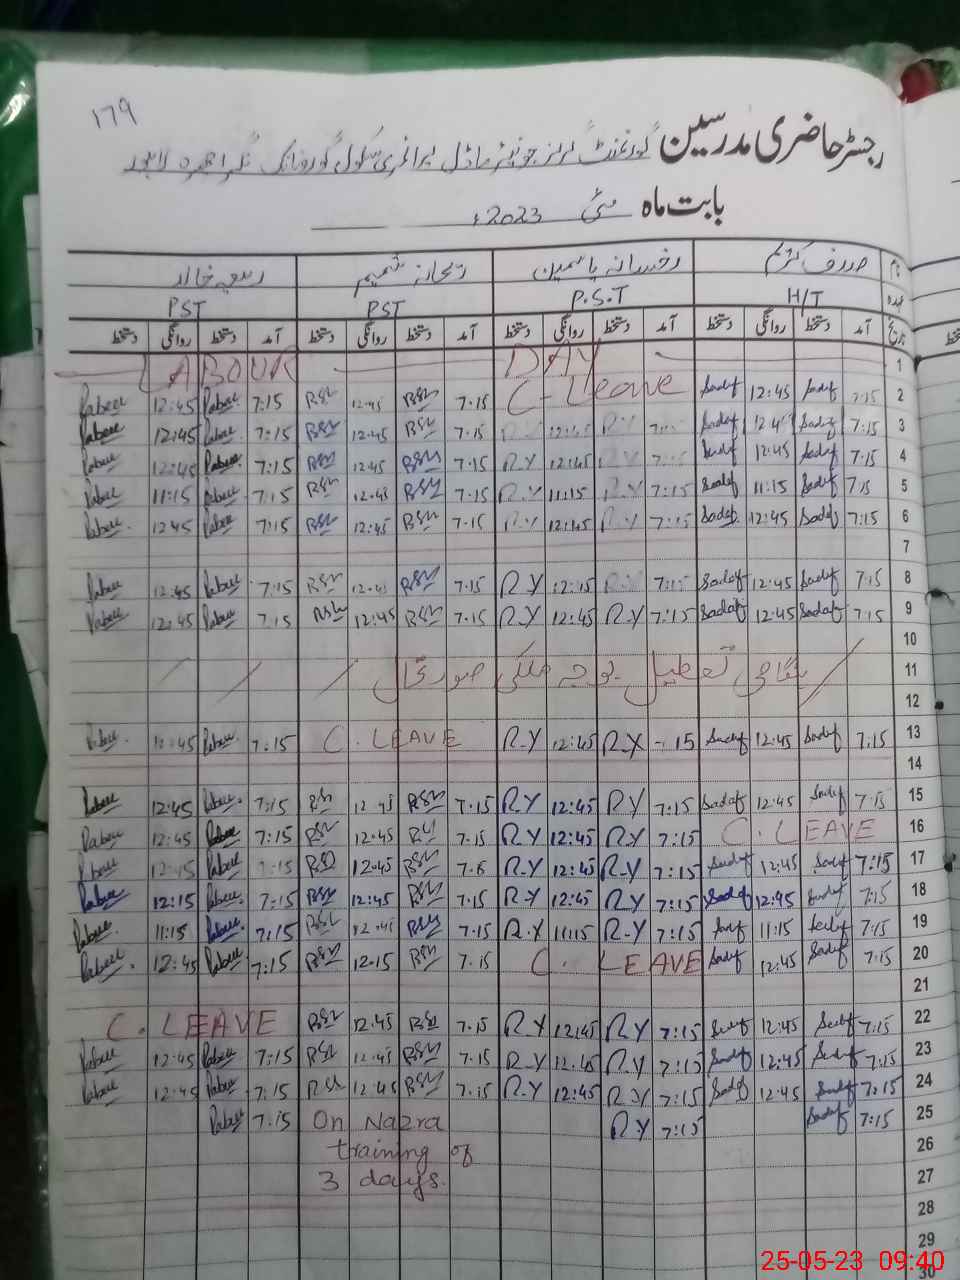 179
رجسٹر حاضری مدرسین گورنمنٹ گرلز جونیئر ماڈل پرائمری سکول گورونانک نگر اچھرہ لاہور
بابت ماہ مئی 2023ء
نام صدف کلثوم رخسانہ یاسمین ریحانہ شمیم ربیعہ خالد
عہدہ H/T P.S.T PST PST
تاریخ آمد دستخط روانگی دستخط آمد دستخط روانگی دستخط آمد دستخط روانگی دستخط آمد دستخط روانگی دستخط
1 LABOUR DAY
2 7:15 Sadef 12:45 Sadef C-Leave 7.15 RSH 12:45 RSH 7:15 Rabeea 12:45 Rabeea
3 7:15 Sadef Sadef RSH 12:45 RSH 7:15 Rabeea 12:45 Rabeea
4 7:15 Sadef 12:45 Sadef 7:15 R.Y 12:45 R.Y 7.15 RSH 12:45 RSH 7:15 Rabeea 12:45 Rabeea
5 7:15 Sadef 11:15 Sadef 7:15 R.Y 11:15 R.Y 7.15 RSH 12:45 RSH 7:15 Rabeea 11:15 Rabeea
6 7:15 Sadef 12:45 Sadef 7:15 R.Y 12:45 R.Y 7.15 RSH 12:45 RSH 7:15 Rabeea 12:45 Rabeea
7
8 7:15 Sadef 12:45 Sadef 7:15 R.Y 12:45 R.Y 7.15 RSH 12:45 RSH 7:15 Rabeea 12:45 Rabeea
9 7:15 Sadef 12:45 Sadef 7:15 R.Y 12:45 R.Y 7.15 RSH 12:45 RSH 7:15 Rabeea 12:45 Rabeea
10
11 ہنگامی تعطیل بوجہ ملکی صورتحال
12
13 7:15 Sadef 12:45 Sadef 15 R.Y 12:45 R.Y C. LEAVE 7:15 Rabeea 12:45 Rabeea
14
15 7:15 Sadef 12:45 Sadef 7:15 RY 12:45 RY 7.15 RSH 12:45 RSH 7:15 Rabeea 12:45 Rabeea
16 C. LEAVE 7:15 RY 12:45 RY 7.15 RSH 12:45 RSH 7:15 Rabeea 12:45 Rabeea
17 7:15 Sadef 12:45 Sadef 7:15 R.Y 12:45 R.Y RSH 12:45 RSH 7:15 Rabeea 12:45 Rabeea
18 7:15 Sadef 12:45 Sadef 7:15 RY 12:45 R.Y 7.15 RSH 12:45 RSH 7:15 Rabeea 12:15 Rabeea
19 7:15 Sadef 11:15 Sadef 7:15 R.Y 11:15 R.Y 7.15 RSH 12.45 RSH 7:15 Rabeea 11:15 Rabeea
20 7:15 Sadef 12:45 Sadef C. LEAVE 7.15 RSH 12:15 RSH 7:15 Rabeea 12:45 Rabeea
21
22 7:15 Sadef 12:45 Sadef 7:15 RY 12:45 RY 7.15 RSH 12:45 RSH C. LEAVE
23 7:15 Sadef 12:45 Sadef 7:15 RY 12:45 R.Y 7.15 RSH 12:45 RSH 7:15 Rabeea 12:45 Rabeea
24 7:15 Sadef 12:45 Sadef 7:15 R.Y 12:45 R.Y 7.15 RSH 12:45 RSH 7:15 Rabeea 12:45 Rabeea
25 7:15 Sadef 7:15 RY On Nazra 7:15 Rabeea
26 training of
27 3 days.
28
29
30
25-05-23 09:40